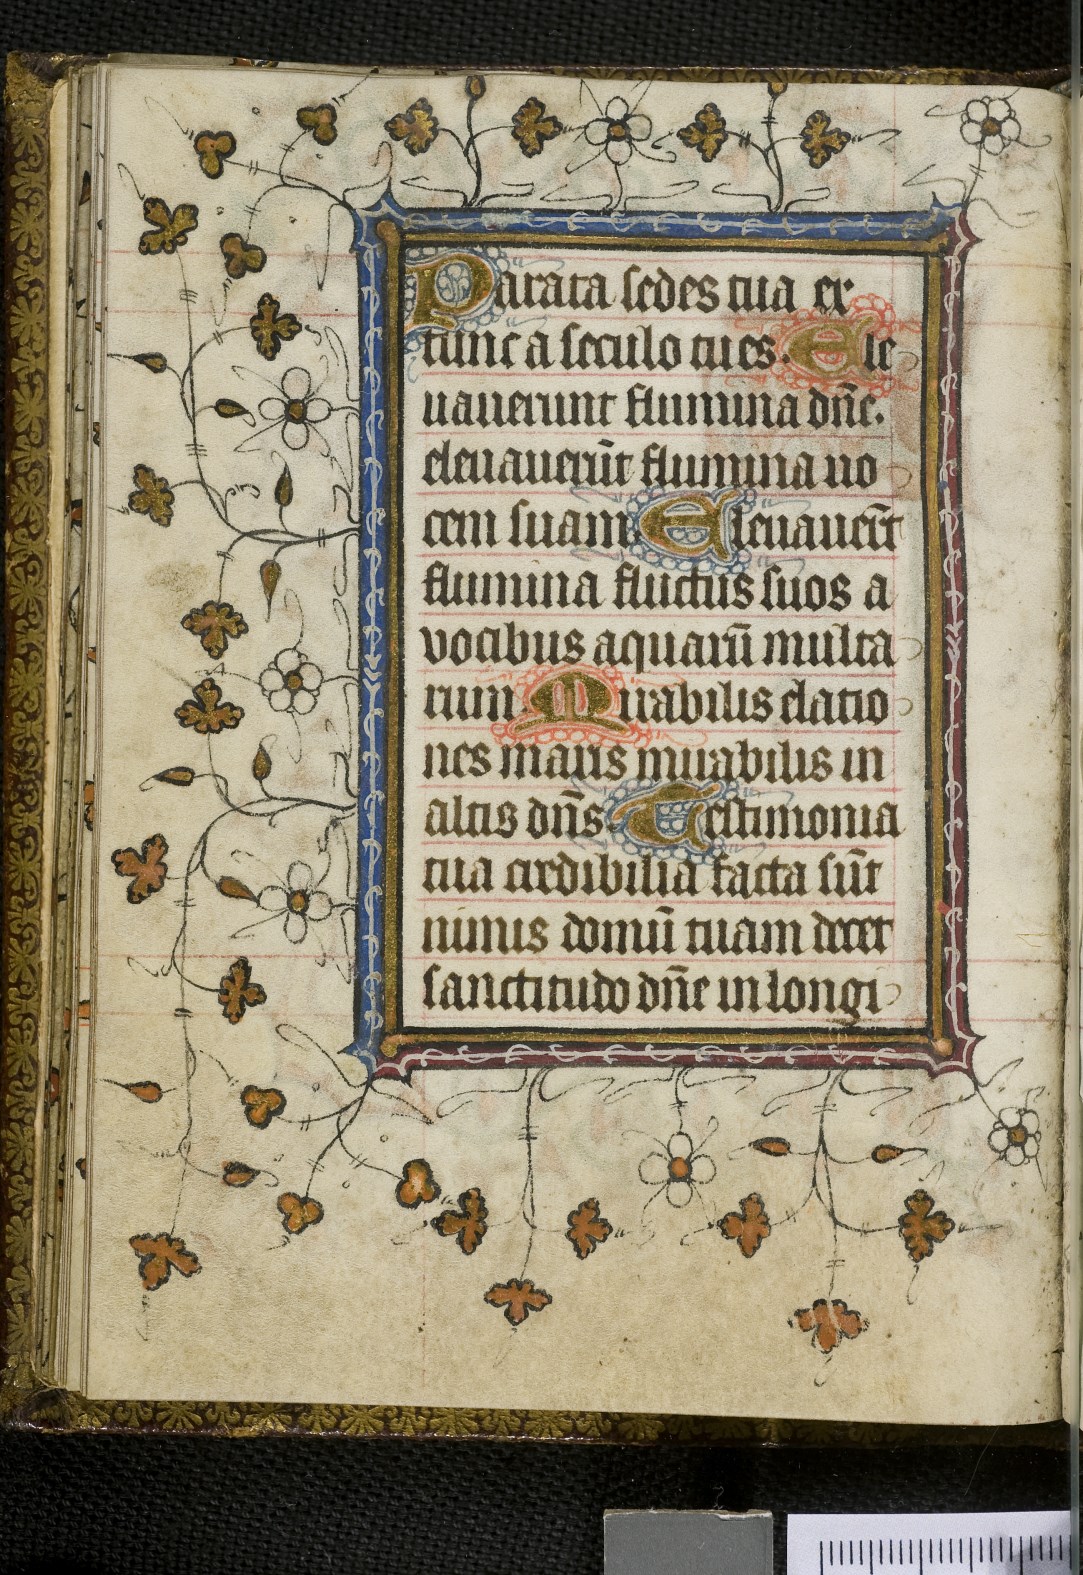 Parata sedes tua ex
tunc a seculo tu es. Ele
uauerunt flumina dn̄e.
eleuauerūt flumina uo
cem suam Eleuauer̄t
flumina fluctus suos a
vocibus aquarū multa
rum. Mirabilis elatio
nes maris mirabilis in
altis dn̄s. Testimonia
tua credibilia facta sūt
nimis domū tuam decet
sanctitudo dn̄e in longi